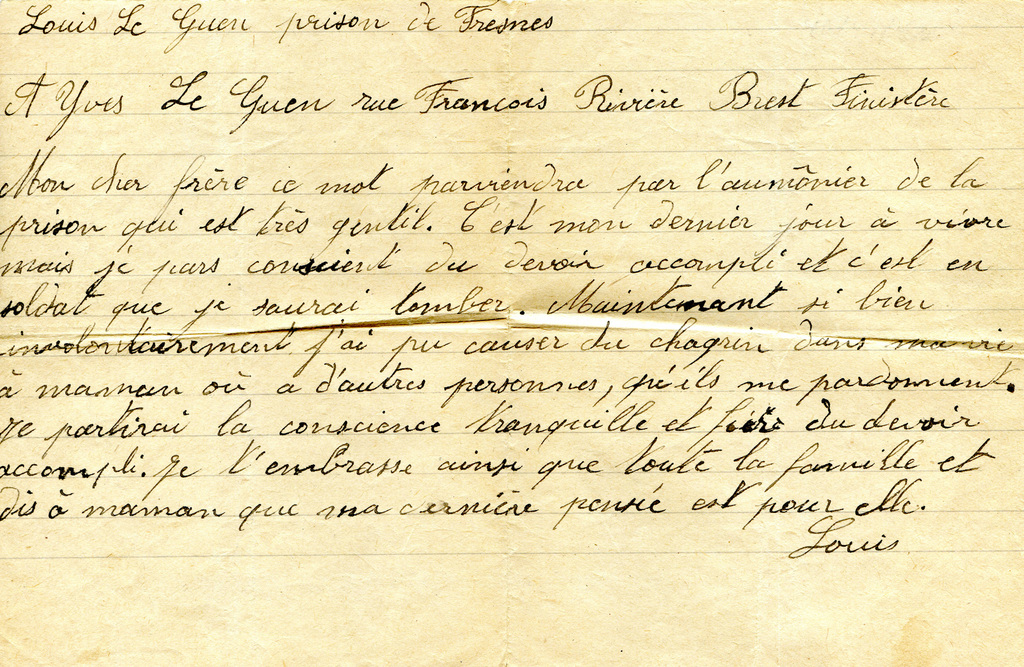 Louis Le Guen prison de Fresnes
A Yves Le Guen rue François Rivière Brest Finistère
Mon cher frère ce mot parviendra par l'aumônier de la
prison qui est très gentil. C'est mon dernier jour à vivre
mais je pars conscient du devoir accompli et c'est en
soldat que je saurai tomber. Maintenant si bien
involontairement j'ai pu causer du chagrin dans ma vie
à maman où a d'autres personnes, qu'ils me pardonnent.
Je partirai la conscience tranquille et fière du devoir
accompli. Je t'embrasse ainsi que toute la famille et
dis à maman que ma dernière pensée est pour elle.
Louis